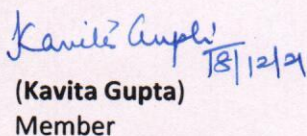 Kavita Gupta
18/12/21
(Kavita Gupta)
Member